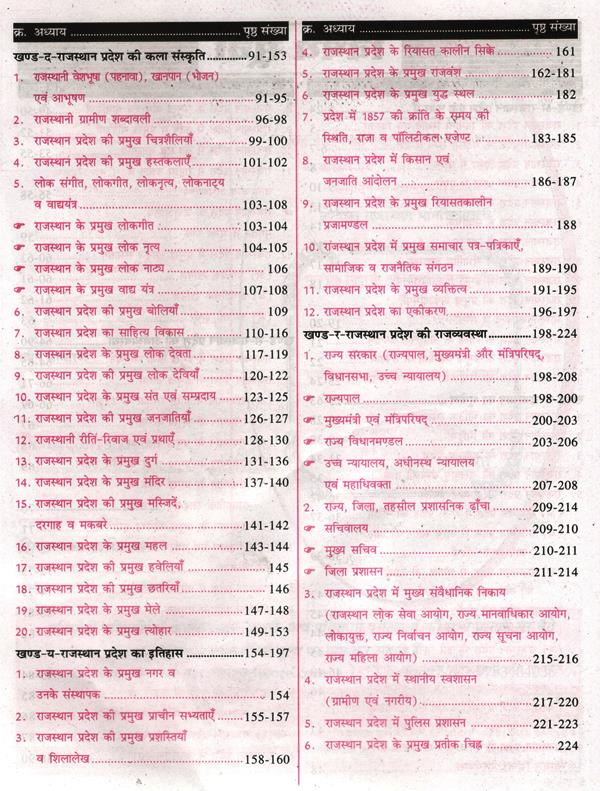 क्र. अध्याय ........ पृष्ठ संख्या
खण्ड-द-राजस्थान प्रदेश की कला संस्कृति ........ 91-153
1. राजस्थानी वेशभूषा (पहनावा), खानपान (भोजन)
एवं आभूषण ........ 91-95
2. राजस्थानी ग्रामीण शब्दावली ........ 96-98
3. राजस्थान प्रदेश की प्रमुख चित्रशैलियाँ ........ 99-100
4. राजस्थान प्रदेश की प्रमुख हस्तकलाएँ ........ 101-102
5. लोक संगीत, लोकगीत, लोकनृत्य, लोकनाट्य
व वाद्ययंत्र ........ 103-108
☛ राजस्थान के प्रमुख लोकगीत ........ 103-104
☛ राजस्थान के प्रमुख लोक नृत्य ........ 104-105
☛ राजस्थान के प्रमुख लोक नाट्य ........ 106
☛ राजस्थान के प्रमुख वाद्य यंत्र ........ 107-108
6. राजस्थान प्रदेश की प्रमुख बोलियाँ ........ 109
7. राजस्थान का साहित्य विकास ........ 110-116
8. राजस्थान प्रदेश के प्रमुख लोक देवता ........ 117-119
9. राजस्थान प्रदेश की प्रमुख लोक देवियाँ ........ 120-122
10. राजस्थान प्रदेश के प्रमुख संत एवं सम्प्रदाय ........ 123-125
11. राजस्थान प्रदेश की प्रमुख जनजातियाँ ........ 126-127
12. राजस्थानी रीति-रिवाज एवं प्रथाएँ ........ 128-130
13. राजस्थान प्रदेश के प्रमुख दुर्ग ........ 131-136
14. राजस्थान प्रदेश के प्रमुख मंदिर ........ 137-140
15. राजस्थान प्रदेश की प्रमुख मस्जिदें,
दरगाह व मकबरे ........ 141-142
16. राजस्थान प्रदेश के प्रमुख महल ........ 143-144
17. राजस्थान प्रदेश की प्रमुख हवेलियाँ ........ 145
18. राजस्थान प्रदेश की प्रमुख छतरियाँ ........ 146
19. राजस्थान प्रदेश के प्रमुख मेले ........ 147-148
20. राजस्थान प्रदेश के प्रमुख त्योहार ........ 149-153
खण्ड-य-राजस्थान प्रदेश का इतिहास ........ 154-197
1. राजस्थान प्रदेश के प्रमुख नगर व
उनके संस्थापक ........ 154
2. राजस्थान प्रदेश की प्रमुख प्राचीन सभ्यताएँ ........ 155-157
3. राजस्थान प्रदेश की प्रमुख प्रशस्तियाँ
व शिलालेख ........ 158-160
क्र. अध्याय ........ पृष्ठ संख्या
4. राजस्थान प्रदेश के रियासत कालीन सिक्के ........ 161
5. राजस्थान प्रदेश के प्रमुख राजवंश ........ 162-181
6. राजस्थान प्रदेश के प्रमुख युद्ध स्थल ........ 182
7. प्रदेश में 1857 की क्रांति के समय की
स्थिति, राजा व पॉलिटीकल एजेण्ट ........ 183-185
8. राजस्थान प्रदेश में किसान एवं
जनजाति आंदोलन ........ 186-187
9. राजस्थान प्रदेश के प्रमुख रियासतकालीन
प्रजामण्डल ........ 188
10. राजस्थान प्रदेश में प्रमुख समाचार पत्र-पत्रिकाएँ,
सामाजिक व राजनैतिक संगठन ........ 189-190
11. राजस्थान प्रदेश के प्रमुख व्यक्तित्व ........ 191-195
12. राजस्थान प्रदेश का एकीकरण ........ 196-197
खण्ड-र-राजस्थान प्रदेश की राजव्यवस्था ........ 198-224
1. राज्य सरकार (राज्यपाल, मुख्यमंत्री और मंत्रिपरिषद्,
विधानसभा, उच्च न्यायालय) ........ 198-208
☛ राज्यपाल ........ 198-200
☛ मुख्यमंत्री एवं मंत्रिपरिषद् ........ 200-203
☛ राज्य विधानमण्डल ........ 203-206
☛ उच्च न्यायालय, अधीनस्थ न्यायालय
एवं महाधिवक्ता ........ 207-208
2. राज्य, जिला, तहसील प्रशासनिक ढ़ाँचा ........ 209-214
☛ सचिवालय ........ 209-210
☛ मुख्य सचिव ........ 210-211
☛ जिला प्रशासन ........ 211-214
3. राजस्थान प्रदेश में मुख्य संवैधानिक निकाय
(राजस्थान लोक सेवा आयोग, राज्य मानवाधिकार आयोग,
लोकायुक्त, राज्य निर्वाचन आयोग, राज्य सूचना आयोग,
राज्य महिला आयोग) ........ 215-216
4. राजस्थान प्रदेश में स्थानीय स्वशासन
(ग्रामीण एवं नगरीय) ........ 217-220
5. राजस्थान प्रदेश में पुलिस प्रशासन ........ 221-223
6. राजस्थान प्रदेश के प्रमुख प्रतीक चिह्न ........ 224